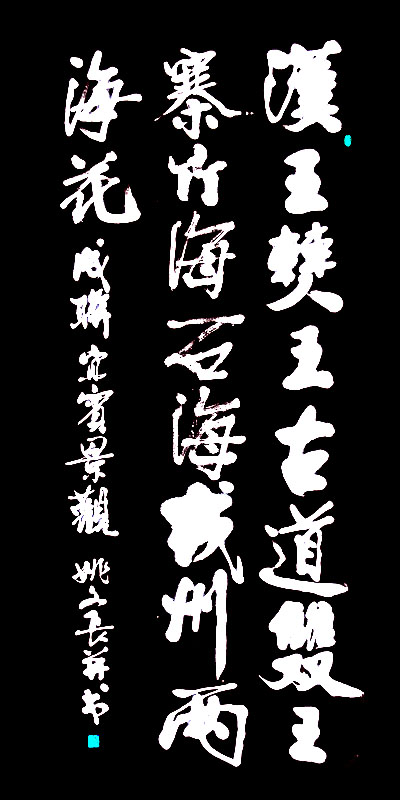 漢王僰王古道雙王
寨竹海石海戎州兩
海花 成聯宜賓景觀 姚 并书